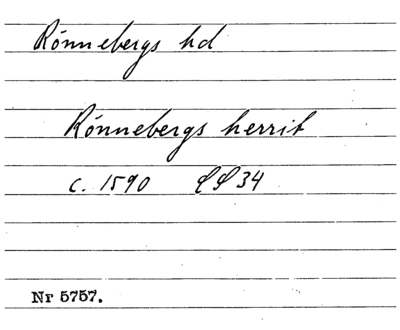 Rönnebergs hd
Rönnebergs herrit
c. 1590 SS 34
Nr 5757.